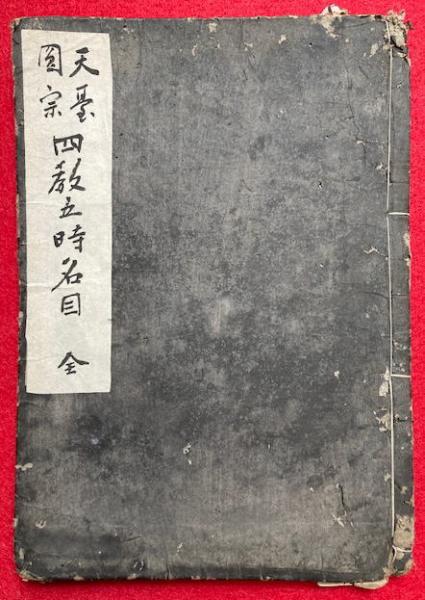 天臺
圓宗
四教五時名目 全